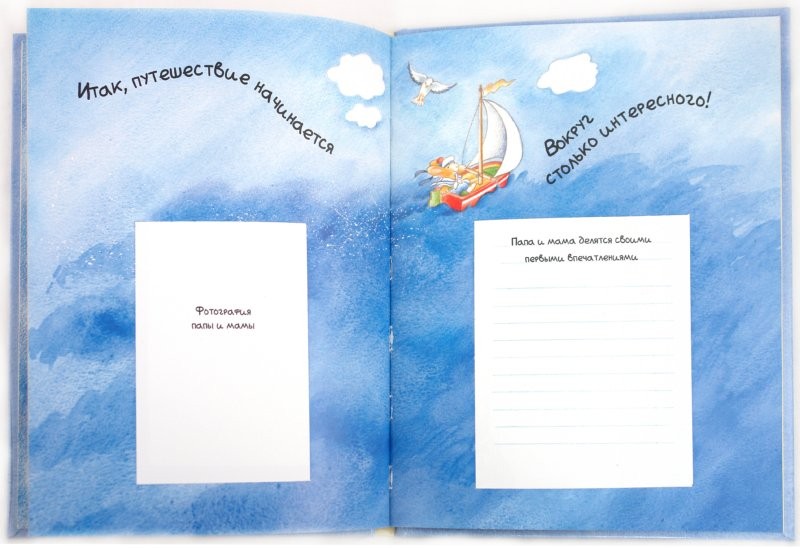 Итак, путешествие начинается
Фотография
папы и мамы
Вокруг
столько интересного!
Папа и мама делятся своими
первыми впечатлениями